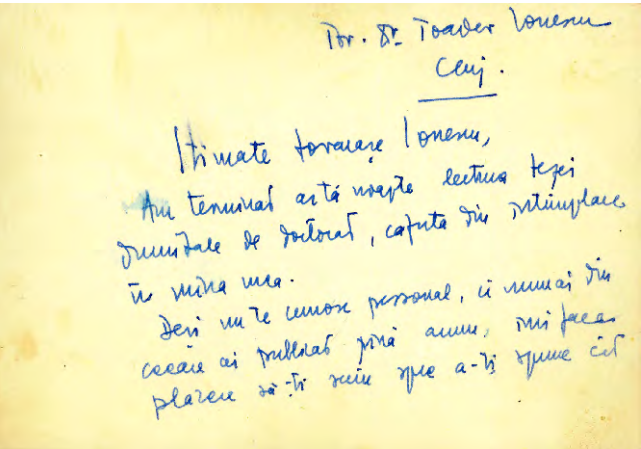 Tov. Dr. Toader Ionescu
Cluj.
Stimate tovarășe Ionescu,
Am terminat astă noapte lectura tezei
dumitale de doctorat, căzută din întîmplare
în mîna mea.
Deși nu te cunosc personal, ci numai din
ceeace ai publicat pînă acum, îmi face
plăcere să-ți scriu spre a-ți spune cît